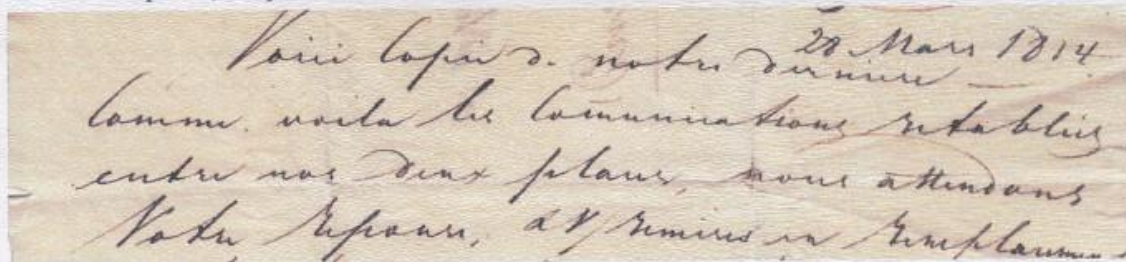 28 Mars 1814
Voici Copie de notre derniere
Comme voila les Comunications retablies
entre nos deux places, nous attendons
Votre reponse, & V/ remises en remplacemen